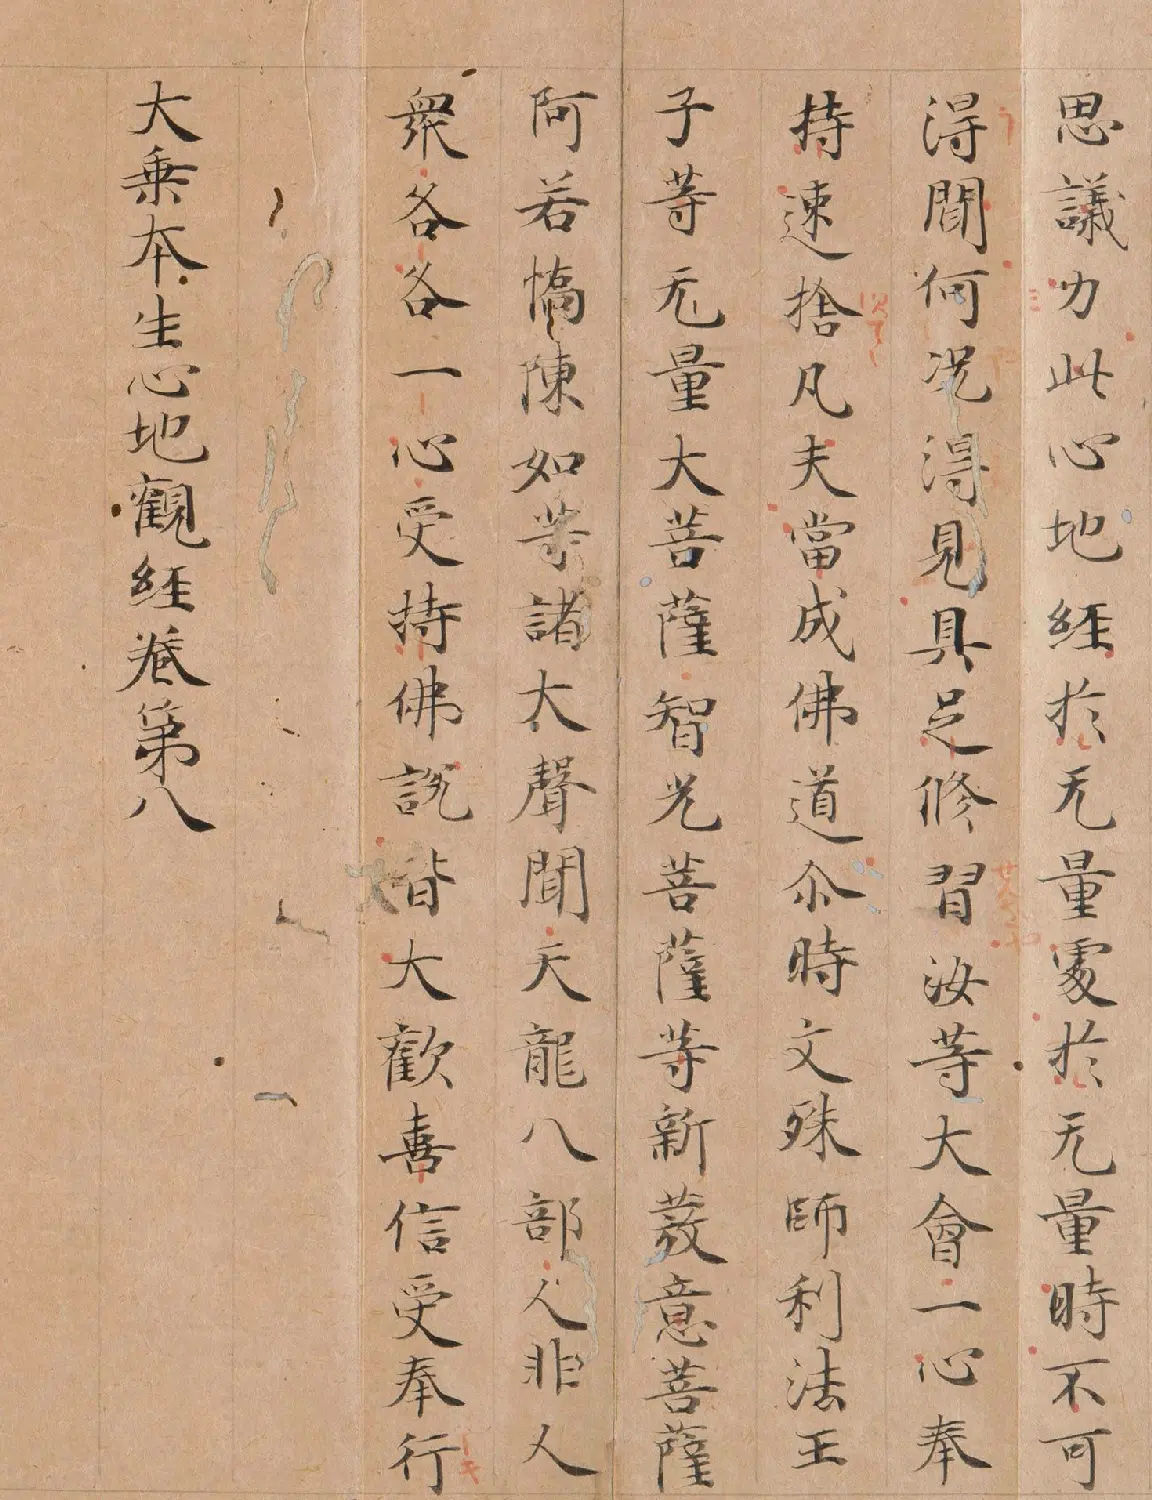 思議力此心地経於无量處於无量時不可
得聞何况得見具足修習汝等大會一心奉
持速捨凡夫當成佛道尒時文殊師利法王
子等无量大菩薩智光菩薩等新發意菩薩
阿若憍陳如等諸大聲聞天龍八部人非人
衆各各一心受持佛說皆大歡喜信受奉行
大乗本生心地觀経卷第八